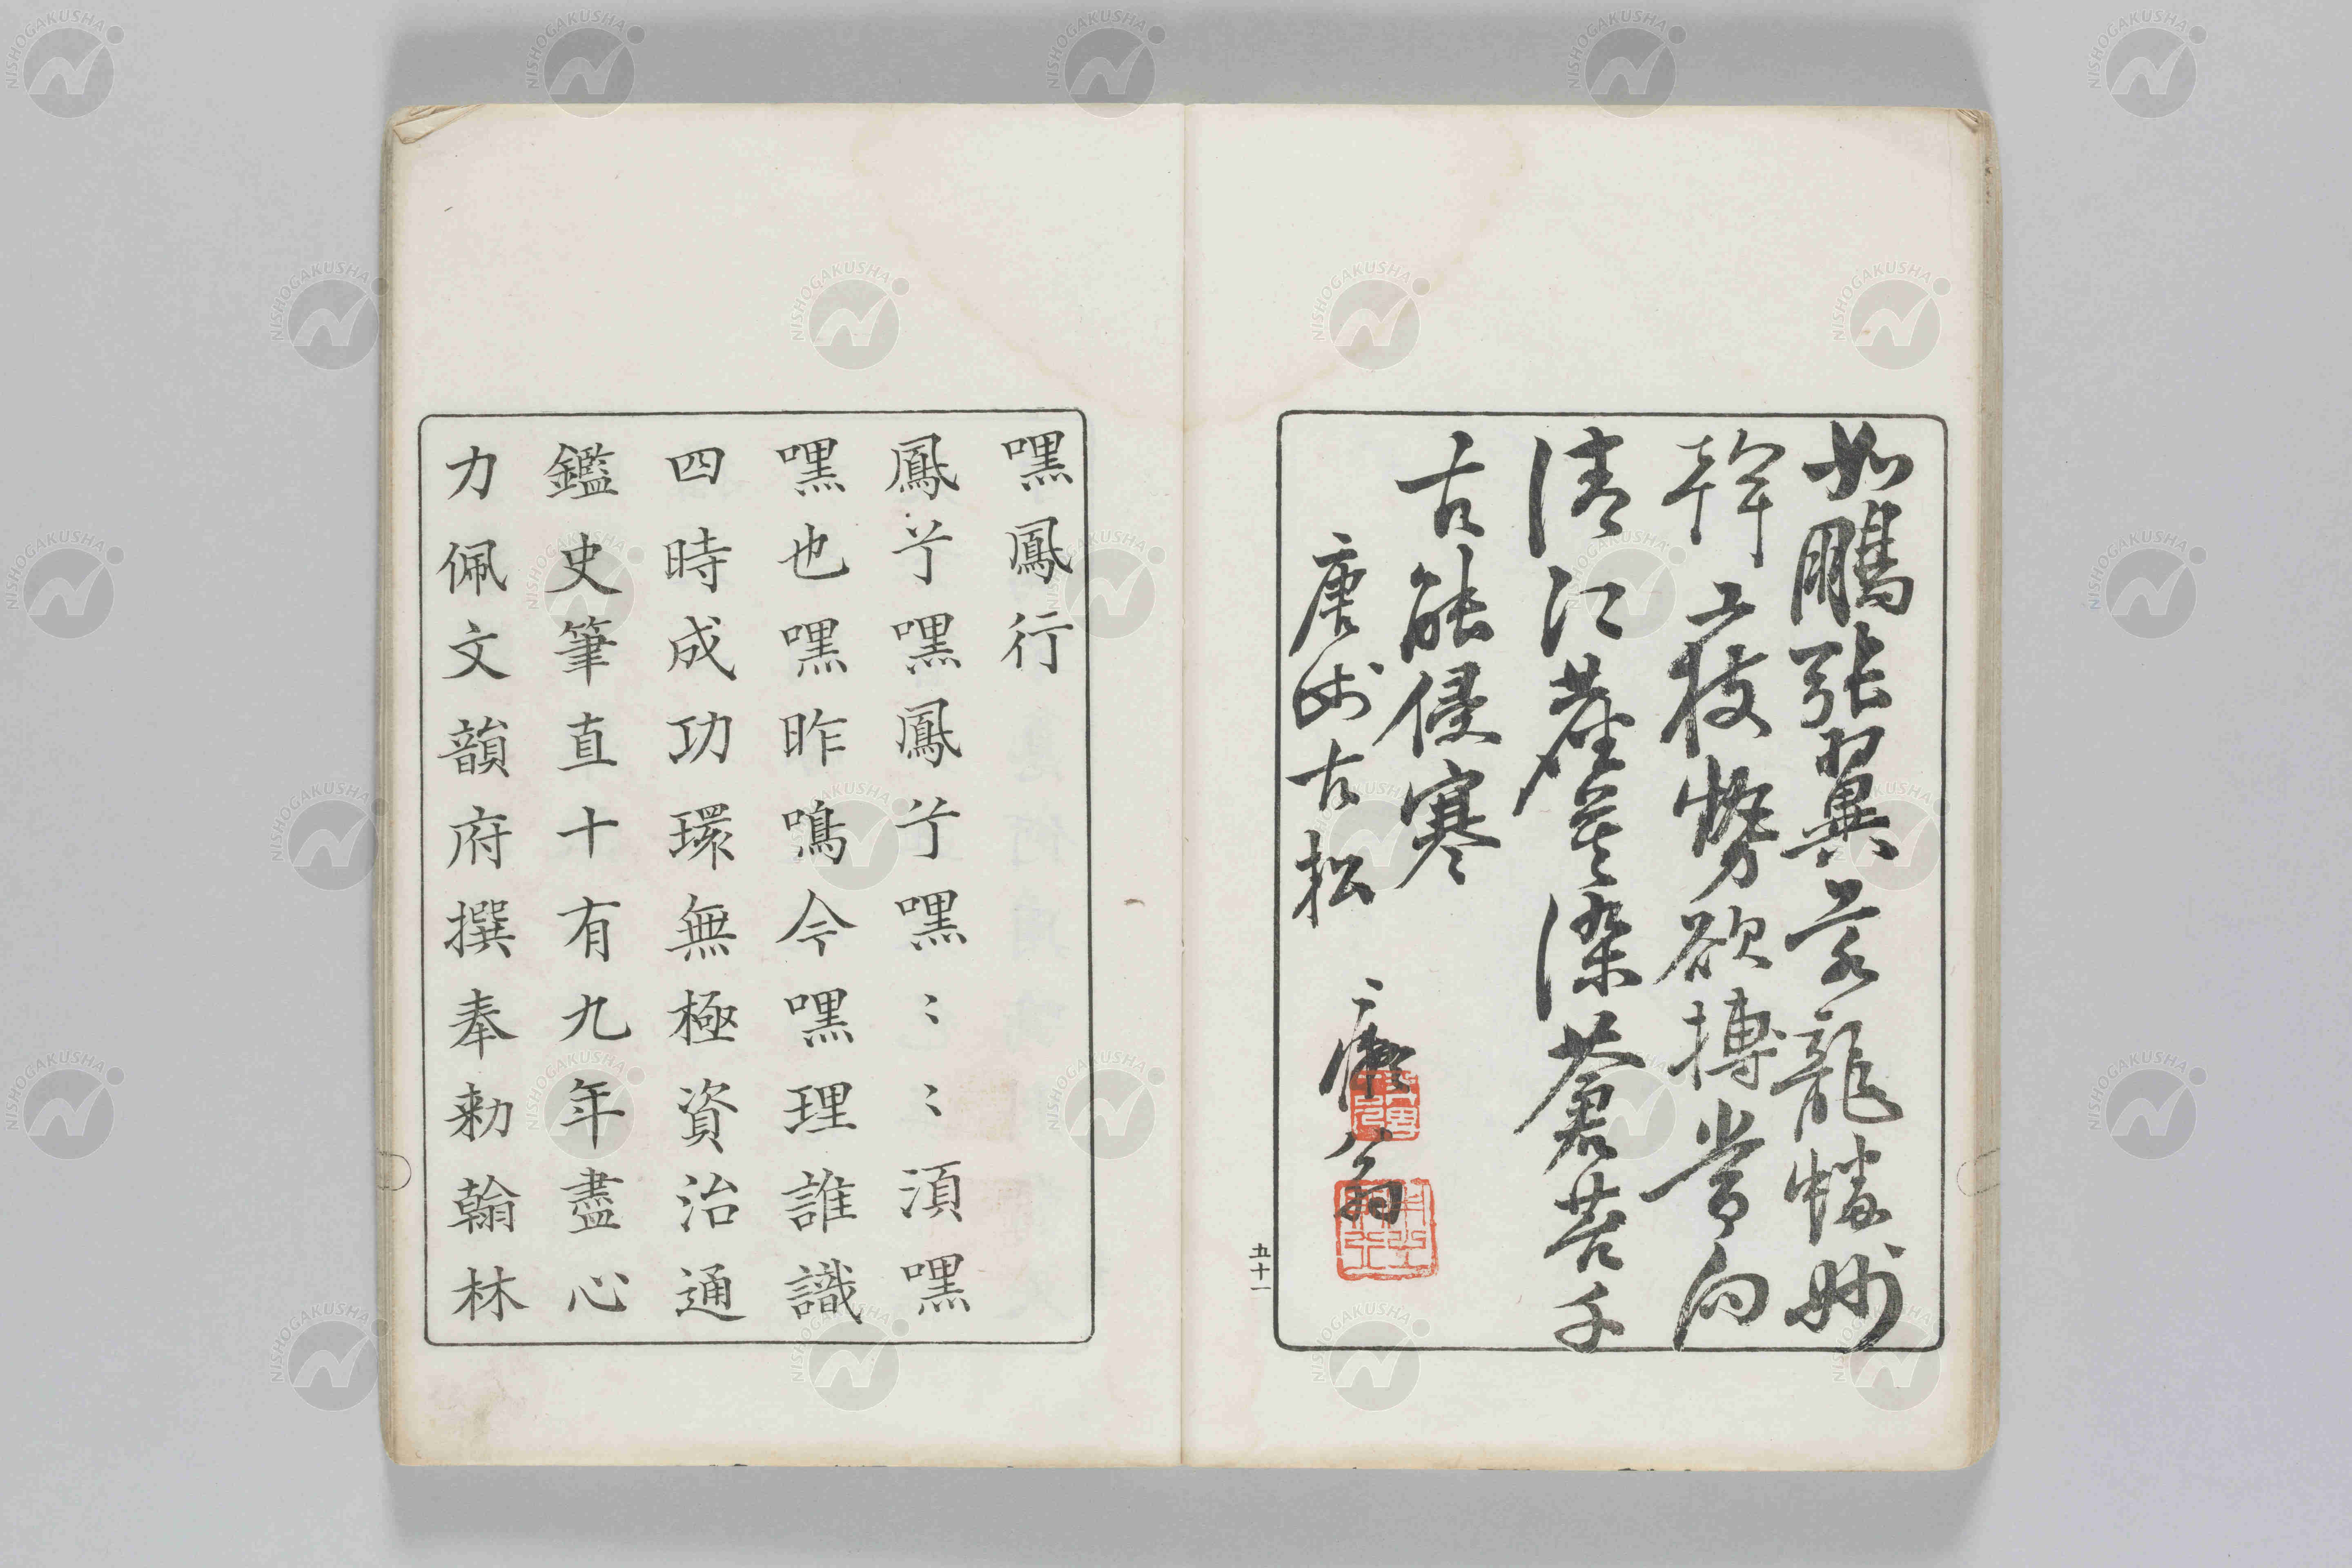 如鵬張翼若龍蟠妙
幹上枝勢欲搏常向
清江塵莫染蒼苔千
古能侵寒
唐崎古松 癡翁
五十一
嘿鳳行
鳳兮嘿鳳兮嘿〻〻湏嘿
嘿也嘿昨鳴今嘿理誰識
四時成功環無極資治通
鑑史筆直十有九年盡心
力佩文韻府撰奉勅翰林
NISHOGAKUSHA